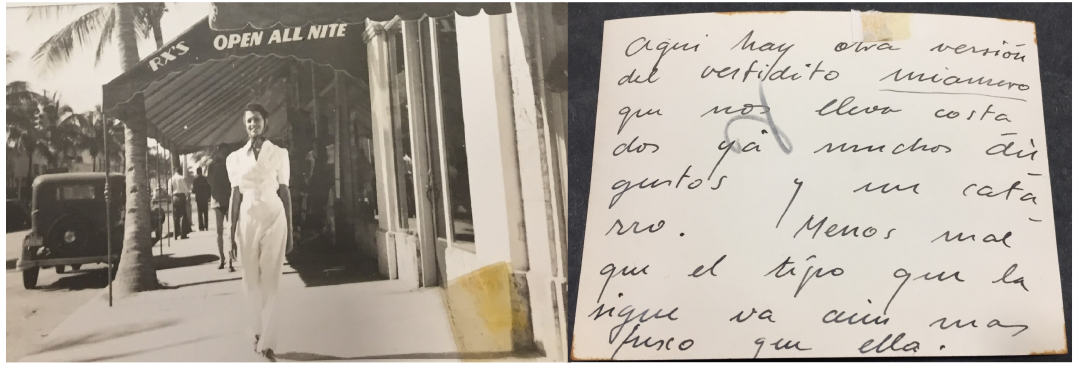 RX'S OPEN ALL NITE
Aqui hay otra versión
del vestidito miamero
que nos lleva costa
dos ya muchos dis
gustos y un cata-
rro. Menos mal
que el tipo que la
sigue va aún mas
fusco que ella.